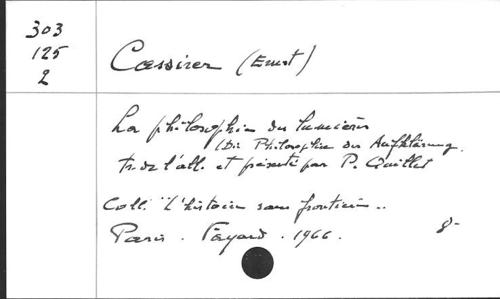 303
125
2
Cassirer (Ernst)
La philosophie des lumières
(Die Philosophie der Aufklärung.
tr. de l'all. et présenté par P. Quillet
Coll. "L'histoire sans frontières"
Paris. Fayard. 1966.
8-